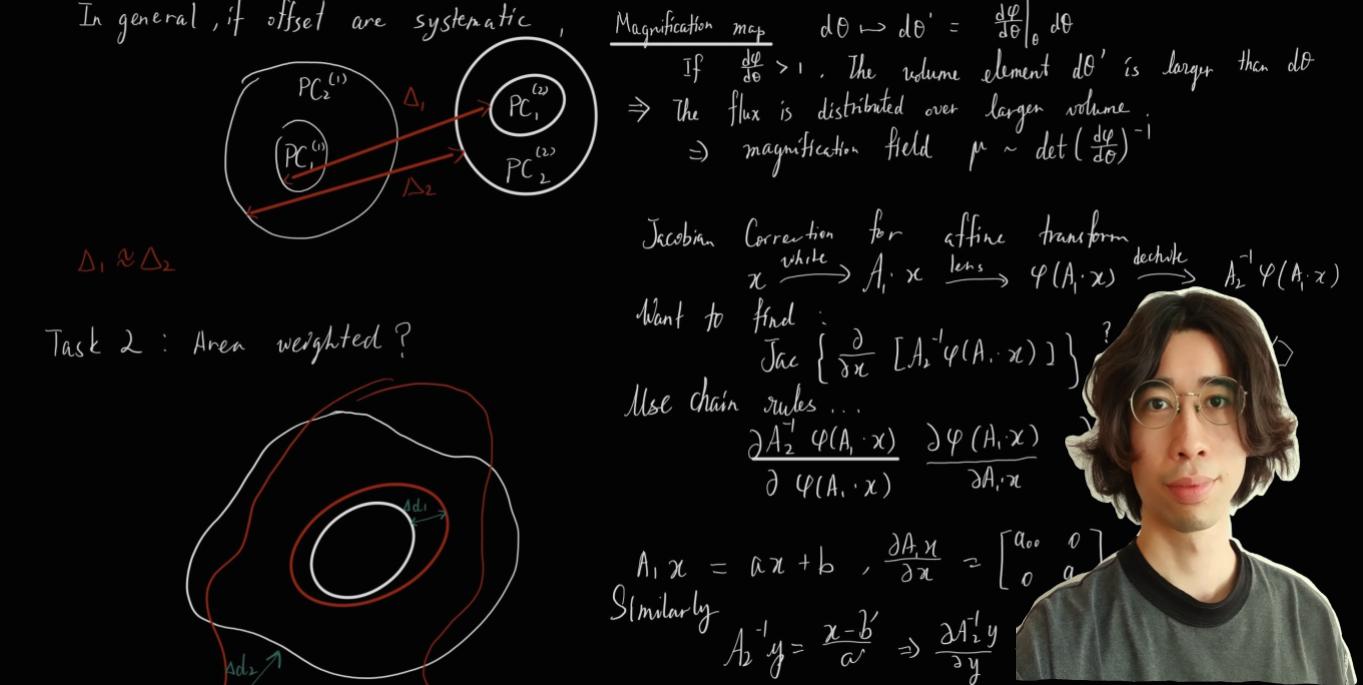 In general, if offset are systematic,
PC₂⁽¹⁾
PC₁⁽¹⁾
Δ₁
Δ₂
PC₁⁽²⁾
PC₂⁽²⁾
Δ₁ ≈ Δ₂
Task 2 : Area weighted ?
Δd₁
Δd₂
Magnification map dθ ↦ dθ' = dφ/dθ|_θ dθ
If dφ/dθ > 1 . The volume element dθ' is larger than dθ
⇒ The flux is distributed over largen volume
⇒ magnification field μ ~ det(dφ/dθ)⁻¹
Jacobian Correction for affine transform
x —white→ A₁·x —lens→ φ(A₁·x) —dewhite→ A₂⁻¹φ(A₁·x)
Want to find :
Jac { ∂/∂x [A₂⁻¹φ(A₁·x)] } ?
Use chain rules ...
∂A₂⁻¹φ(A₁·x)/∂φ(A₁·x) ∂φ(A₁·x)/∂A₁·x
A₁x = ax + b , ∂A₁x/∂x = [a₀₀ 0
0 a
Similarly
A₂⁻¹y = x-b'/a' ⇒ ∂A₂⁻¹y/∂y